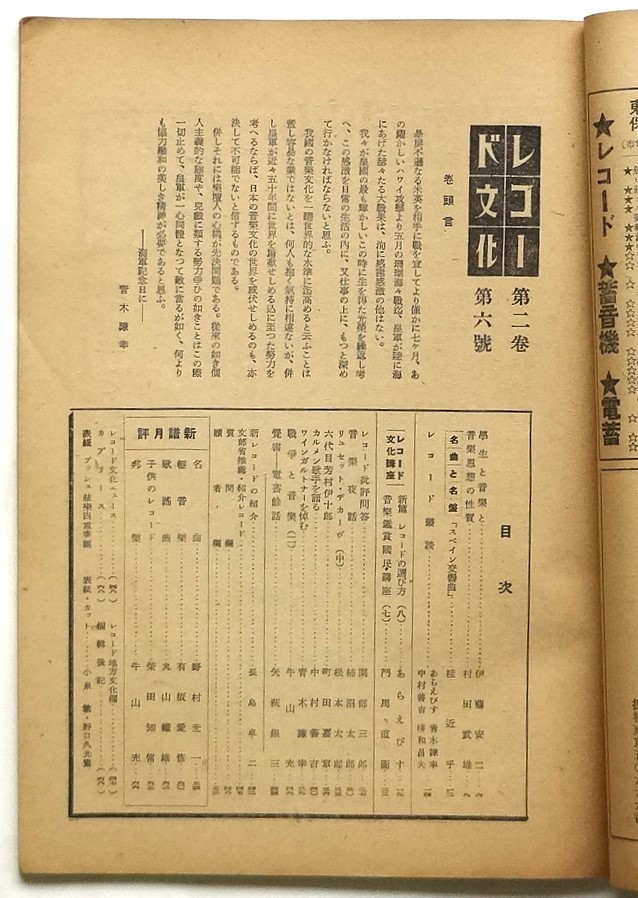 レコード文化
第二卷 第六號
卷頭言
暴戻不遜なる米英を相手に戰を宣してより僅かに七ヶ月、あ
の輝かしいハワイ攻擊より五月の珊瑚海々戰迄、皇軍が陸に海
にあげた赫々たる大戰果は、洵に感謝感激の他はない。
我々が皇國の最も輝かしいこの時に生を得た光榮を繰返し考
へ、この感激を日常の生活の內に、又仕事の上に、もつと深め
て行かなければならないと思ふ。
我國の音樂文化を一躍世界的な水準に迄高めると云ふことは
し容易な業ではないとは、何人も抱く氣持に相違ないが、併
し皇軍が近々五十年間に世界を震駭せしめる迄に至つた努力を
考へるならば、日本の音樂文化の世界を威伏せしめるのも、亦
決して不可能でないと信ずるものである。
併しそれには樂壇人の心構が先決問題である。從來の如き個
人主義的な態度や、兒戲に類する勢力爭ひの如きことはこの際
一切止めて、皇軍が一心同體となつて敵に當るが如く、何より
も協力融和の美しき精神が必要であると思ふ。
——海軍記念日に——
青木謙幸
目次
學生と音樂と 伊藤安二
音樂思想の性質 村田武雄
名曲と名盤「スペイン交響曲」 桂近乎
レコード叢談 あらえびす 青木謙幸 中村善吉 坪和昌夫
レコード文化講座
新篇 レコードの選び方(八) あらえびす
音樂鑑賞國民講座(七) 門馬直衞
レコード批評問答 關郎三郎
音樂夜話 柿沼太郎
リュセット・デカーヴ(中) 松本太郎
六代目芳村伊十郎 町田嘉章
カルメン歌手を語る 中村善吉
ワインガルトナーを悼む 青木謙幸
戰爭と音樂(二) 牛山充
覺書—電蓄餘話 矢萩銀三
新レコードの紹介 長島卓二
文部省推薦・紹介レコード
質問欄
讀者欄
新譜月評
名曲 野村光一
輕音樂 有坂愛彥
歌謠曲 丸山鐵雄
子供のレコード 柴田知常
邦樂 牛山充
レコード文化ニュース
レコード地方文化欄
カプリース
編輯後記
表紙 ブッシュ絃樂四重奏團
表紙・カット 小泉繁・野口久光
★レコード★蓄音機★電蓄